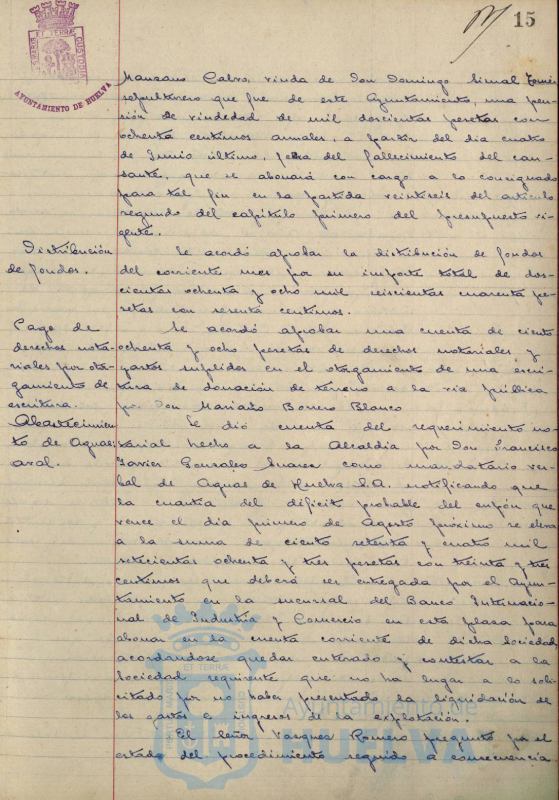 15
PORTUS MARIS ET TERRAE CUSTODIA
AYUNTAMIENTO DE HUELVA
Manzano Calvo, viuda de Don Domingo
sepulturero que fue de este Ayuntamiento, una pen-
sión de viudedad de mil doscientas pesetas con
ochenta centimos anuales, a partir del dia cuatro
de Junio último, fecha del fallecimiento del cau-
sante, que se abonará con cargo a lo consignado
para tal fin en la partida veintiseis del articulo
segundo del capitulo primero del presupuesto vi-
gente.
Distribución
de fondos.
Se acordó aprobar la distribución de fondos
del corriente mes por su importe total de dos-
cientas ochenta y ocho mil seiscientas cuarenta pe-
setas con sesenta centimos.
Pago de
derechos nota-
riales por otor-
gamiento de
escritura.
Se acordó aprobar una cuenta de ciento
ochenta y ocho pesetas de derechos notariales y
gastos suplidos en el otorgamiento de una escri-
tura de donación de terreno a la via pública
por Don Mariano Borrero Blanco
Abastecimien-
to de Aguas
Se dió cuenta del requerimiento no-
tarial hecho a la Alcaldia por Don Francisco
Javier Gonzalez Suarez como mandatario ver-
bal de Aguas de Huelva S.A. notificando que
la cuantia del déficit probable del cupón que
vence el dia primero de Agosto próximo se eleva
a la suma de ciento setenta y cuatro mil
setecientas ochenta y tres pesetas con treinta y tres
centimos que deberá ser entregada por el Ayun-
tamiento en la sucursal del Banco Internacio-
nal de Industria y Comercio en esta plaza para
abonar en la cuenta corriente de dicha Sociedad
acordandose quedar enterado y contestar a la
Sociedad requirente que no ha lugar a lo soli-
citado por no haber presentado la liquidación de
los gastos e ingresos de la explotación.
El Señor Vazquez Romero preguntó por el
estado del procedimiento seguido a consecuencia
Ayuntamiento de
HUELVA